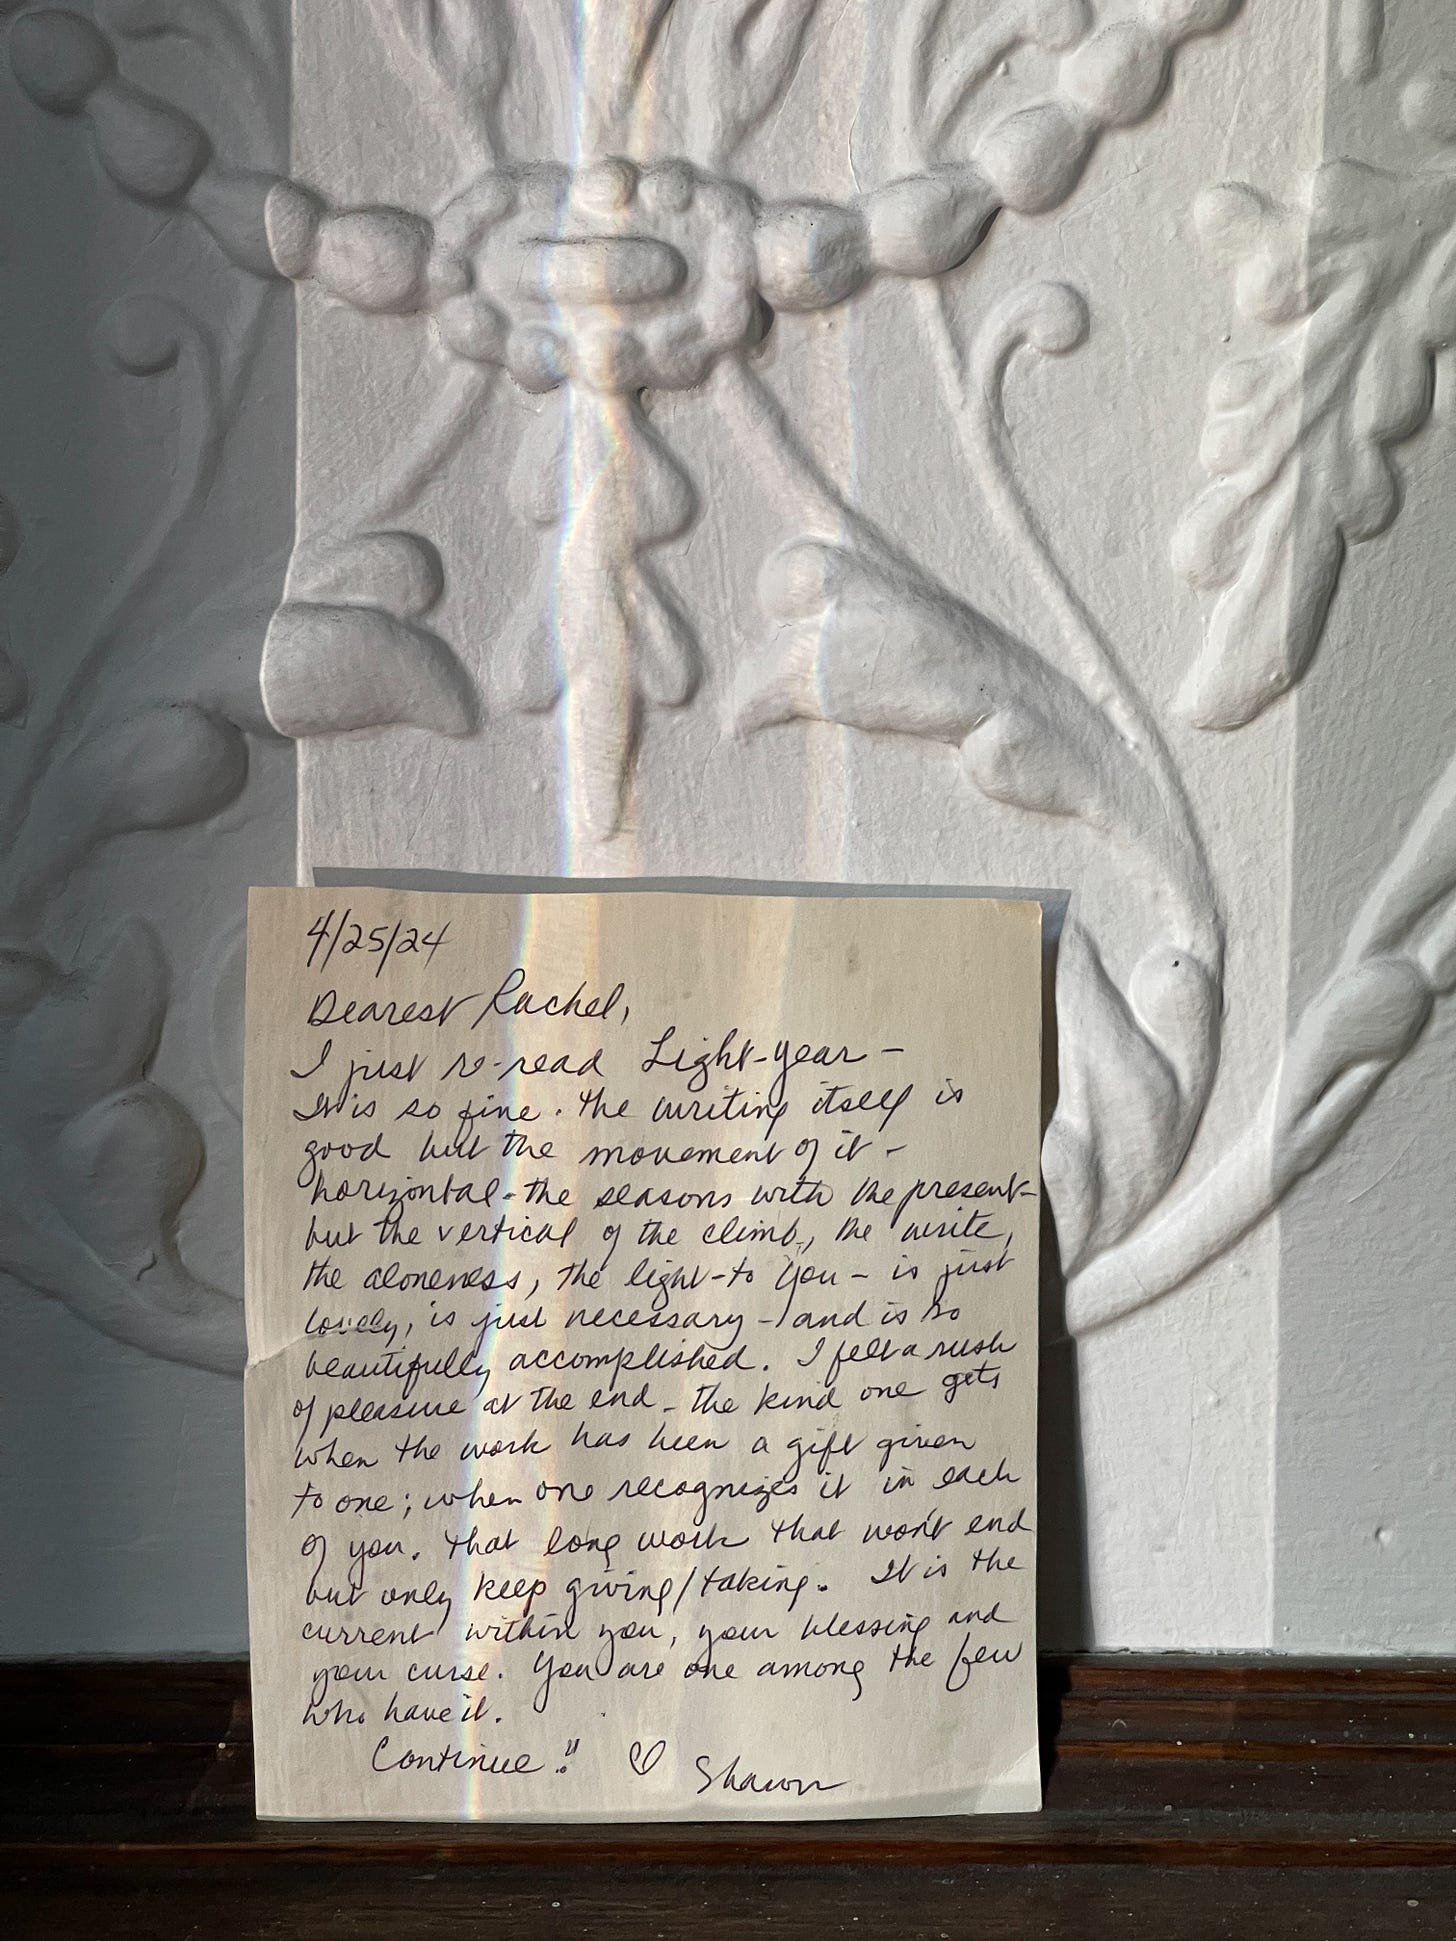 4/25/24
Dearest Rachel,
I just re-read Light-Year –
It is so fine. The writing itself is
good but the movement of it –
horizontal - the seasons with the present –
but the vertical of the climb, the write,
the aloneness, the light - to you – is just
lovely, is just necessary – and is so
beautifully accomplished. I felt a rush
of pleasure at the end – the kind one gets
when the work has been a gift given
to one; when one recognizes it in each
of you. That long work that won't end
but only keep giving/taking. It is the
current within you, your blessing and
your curse. You are one among the few
who have it.
Continue!! ♡ Shawn